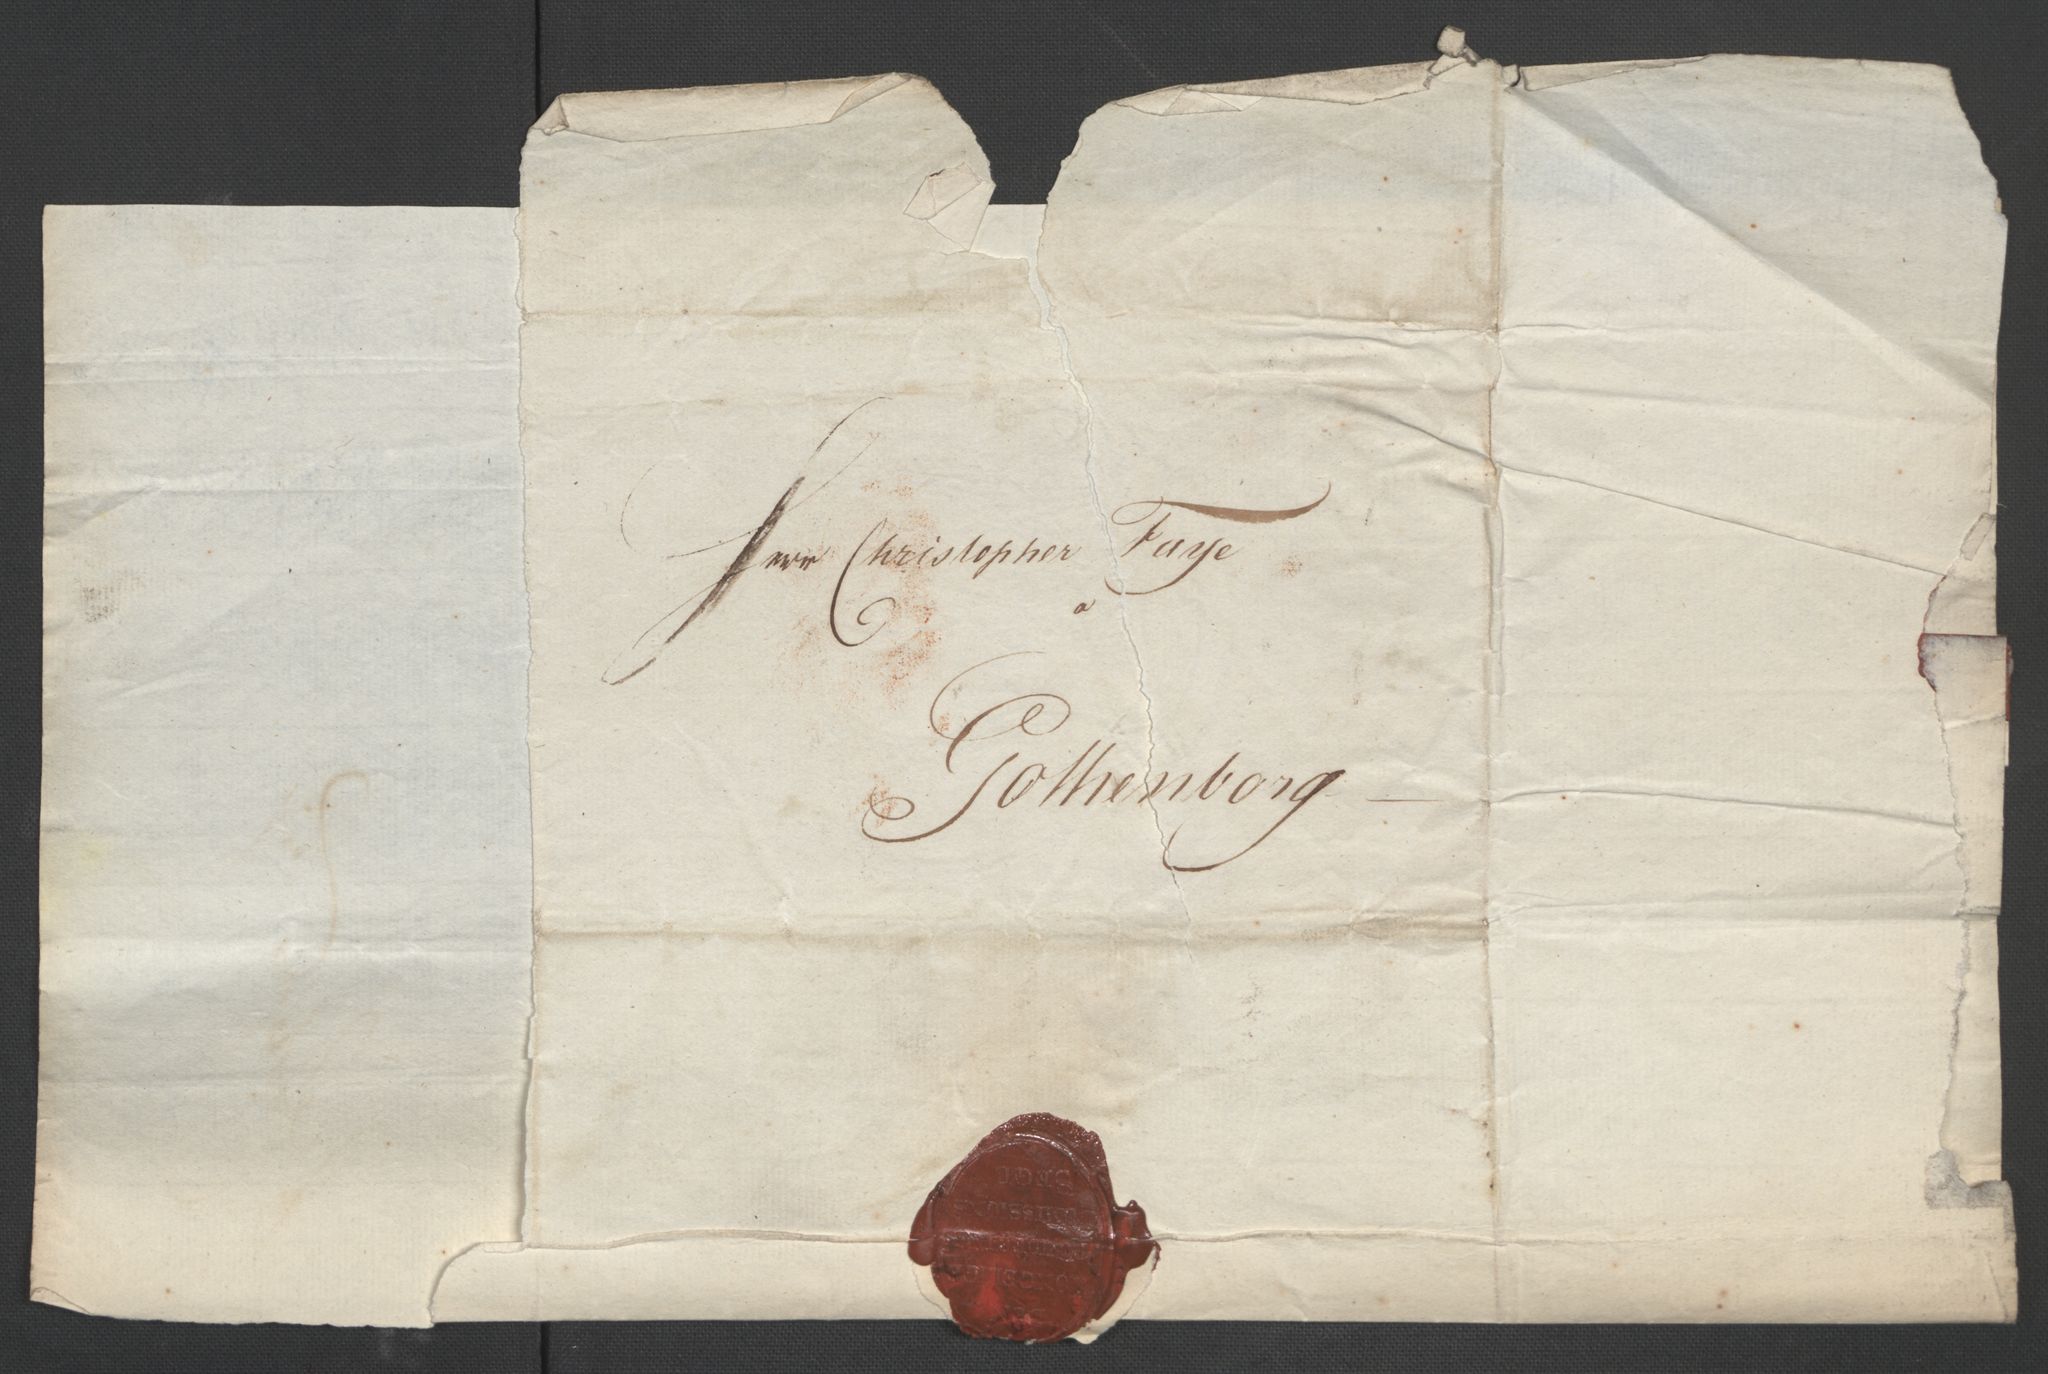 Herr Christopher Faye
a
Gothenborg